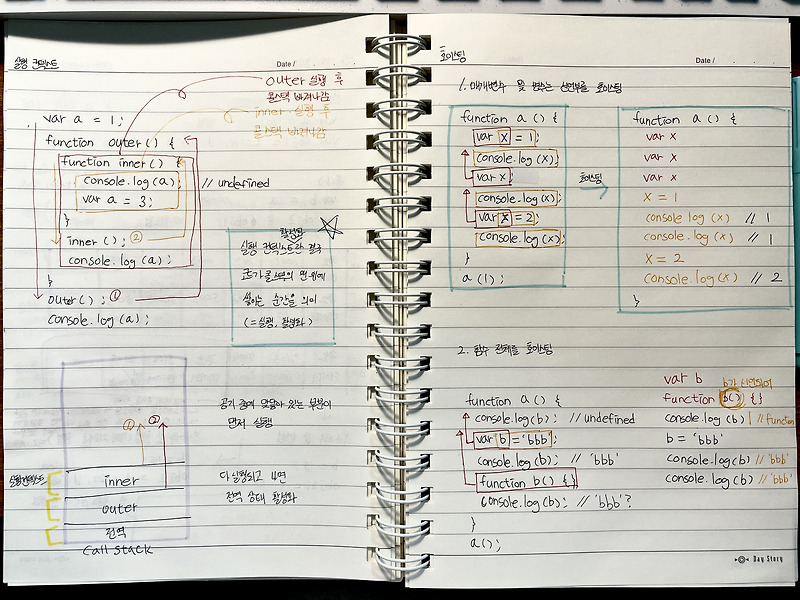 실행 컨텍스트
Date /
outer 실행 후
콜스택 빠져나감
inner 실행 후
콜스택 빠져나감
var a = 1;
function outer() {
function inner() {
console.log(a); // undefined
var a = 3;
}
inner(); ②
console.log(a);
}
outer(); ①
console.log(a);
활성화된
실행 컨텍스트란 결국
콜스택의 맨 위에
쌓이는 순간을 의미
(= 실행, 활성화)
① ②
공기 중에 맞닿아 있는 부분이
먼저 실행
다 실행되고 나면
전역 상태 활성화
실행컨텍스트
inner
outer
전역
Call stack
호이스팅
Date /
1. 매개변수 및 변수는 선언부를 호이스팅
function a() {
var x = 1;
console.log(x);
var x;
console.log(x);
var x = 2;
console.log(x);
}
a(1);
호이스팅
function a() {
var x
var x
var x
x = 1
console.log(x) // 1
console.log(x) // 1
x = 2
console.log(x) // 2
}
2. 함수 전체를 호이스팅
function a() {
console.log(b); // undefined
var b = 'bbb';
console.log(b); // 'bbb'
function b() { }
console.log(b); // 'bbb'?
}
a();
var b
b가 선언되어
function b() { }
console.log(b) // function
b = 'bbb'
console.log(b) // 'bbb'
console.log(b) // 'bbb'
Day Story